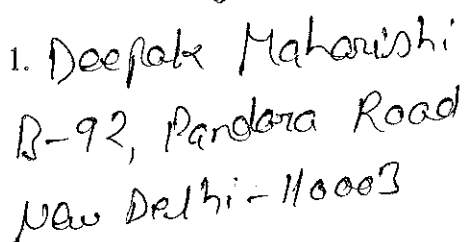 1. Deepak Maharishi
B-92, Pandara Road
New Delhi-110003